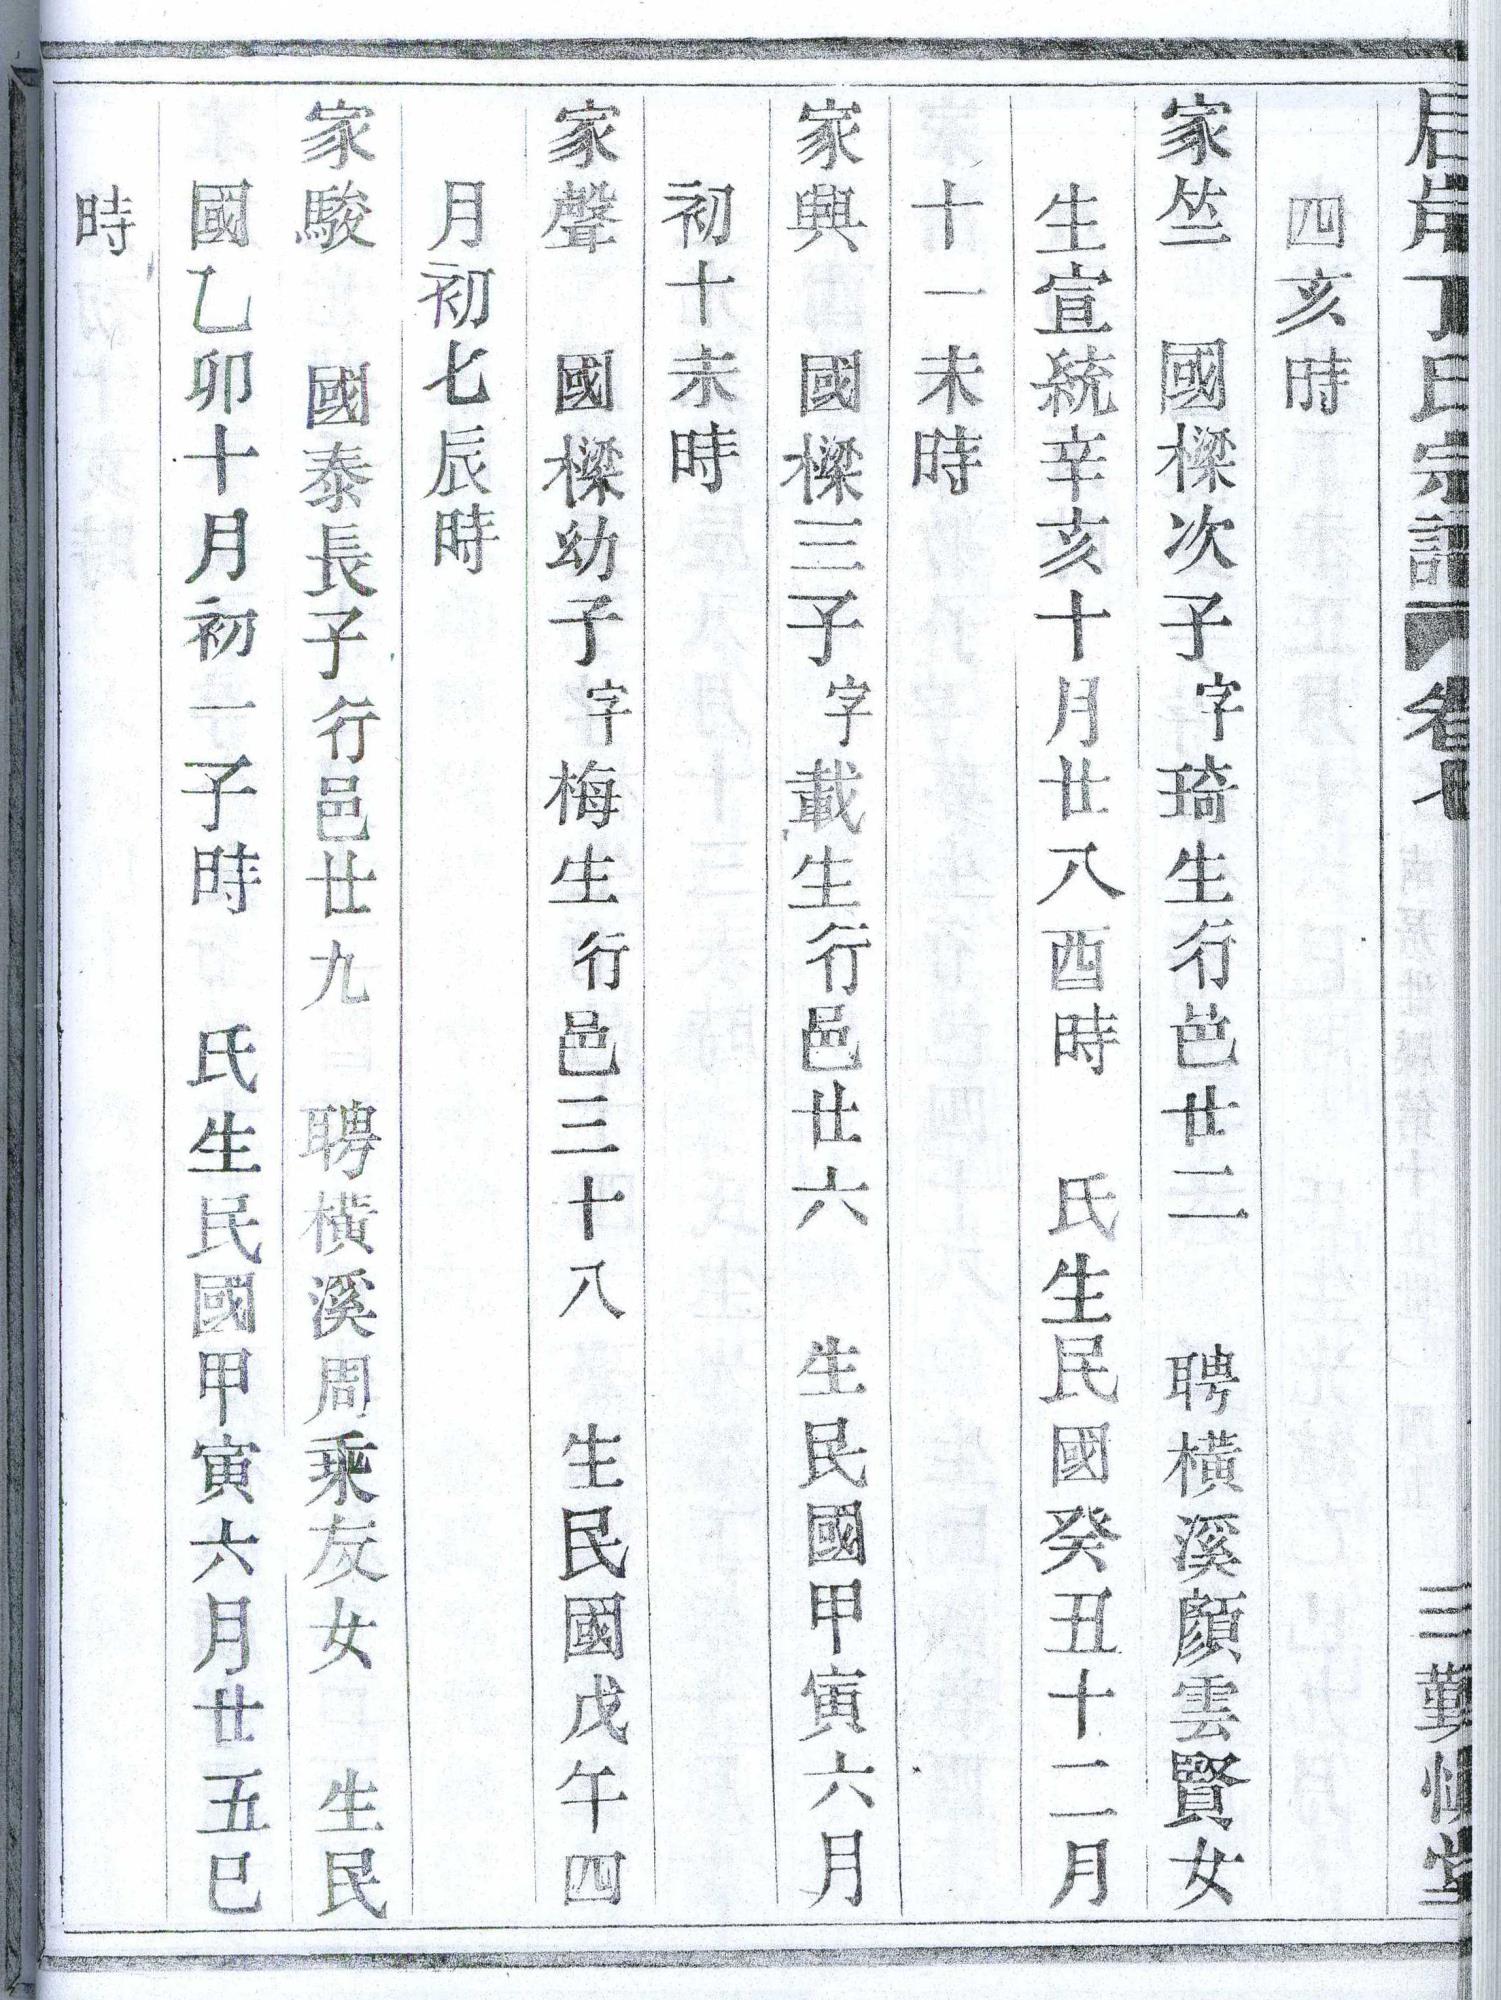 丁氏宗譜 卷七 三 勤慎堂
四亥時
家竺 國樑次子字琦生行邑廿二 聘橫溪顏雲賢女
生宣統辛亥十月廿八酉時 氏生民國癸丑十二月
十一未時
家興 國樑三子字載生行邑廿六 生民國甲寅六月
初十未時
家聲 國樑幼子字梅生行邑三十八 生民國戊午四
月初七辰時
家駿 國泰長子行邑廿九 聘橫溪周乘友女 生民
國乙卯十月初一子時 氏生民國甲寅六月廿五巳
時